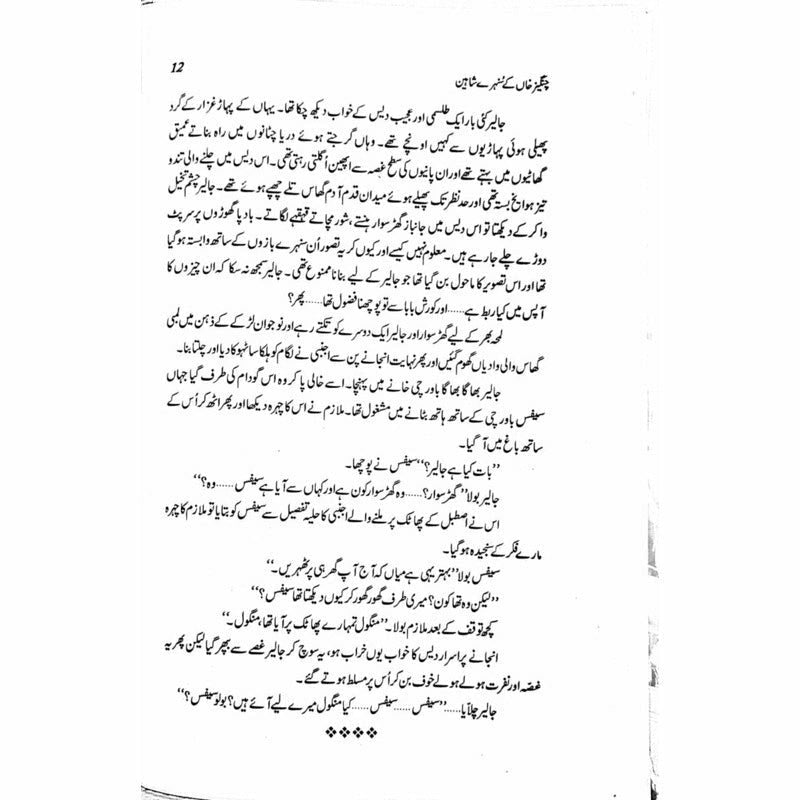 چنگیز خاں کے سنہرے شاہین
12
جالیر کئی بار ایک طلسمی اور عجیب دیس کے خواب دیکھ چکا تھا۔ یہاں کے پہاڑ غزار کے گرد
پھیلی ہوئی پہاڑیوں سے کہیں اونچے تھے۔ وہاں گرجتے ہوئے دریا چٹانوں میں راہ بناتے عمیق
گھاٹیوں میں بہتے تھے اور ان پانیوں کی سطح غصہ سے اپھین اُگلتی رہتی تھی۔ اس دیس میں چلنے والی تند و
تیز ہوا یخ بستہ تھی اور حد نظر تک پھیلے ہوئے میدان قدم آدم گھاس تلے چھپے ہوئے تھے۔ جالیر چشم تخیل
وا کر کے دیکھتا تو اس دیس میں جانباز گھڑ سوار ہنستے، شور مچاتے قہقہے لگاتے۔ باد پا گھوڑوں پر سرپٹ
دوڑے چلے جا رہے ہیں۔ معلوم نہیں کیسے اور کیوں کر یہ تصور اُن سنہرے بازوں کے ساتھ وابستہ ہو گیا
تھا اور اس تصویر کا ماحول بن گیا تھا جو جالیر کے لیے بنانا ممنوع تھی۔ جالیر سمجھ نہ سکا کہ ان چیزوں کا
آپس میں کیا ربط ہے......اور کورش بابا سے تو پوچھنا فضول تھا......پھر؟
لمحہ بھر کے لیے گھڑ سوار اور جالیر ایک دوسرے کو تکتے رہے اور نوجوان لڑکے کے ذہن میں لمبی
گھاس والی وادیاں گھوم گئیں اور پھر نہایت انجانے پن سے اجنبی نے لگام کو ہلکا سا ٹہوکا دیا اور چلتا بنا۔
جالیر بھاگا بھاگا باورچی خانے میں پہنچا۔ اسے خالی پا کر وہ اس گودام کی طرف گیا جہاں
سیفس باورچی کے ساتھ ہاتھ بٹانے میں مشغول تھا۔ ملازم نے اس کا چہرہ دیکھا اور پھر اٹھ کر اُس کے
ساتھ باغ میں آ گیا۔
’’بات کیا ہے جالیر؟‘‘ سیفس نے پوچھا۔
جالیر بولا ’’گھڑ سوار؟......وہ گھڑ سوار کون ہے اور کہاں سے آیا ہے سیفس......وہ؟‘‘
اس نے اصطبل کے پھاٹک پر ملنے والے اجنبی کا حلیہ تفصیل سے سیفس کو بتایا تو ملازم کا چہرہ
مارے فکر کے سنجیدہ ہو گیا۔
سیفس بولا ’’بہتر یہی ہے میاں کہ آج آپ گھر ہی پر ٹھہریں۔‘‘
’’لیکن وہ تھا کون؟ میری طرف گھور گھور کر کیوں دیکھتا تھا سیفس؟‘‘
کچھ توقف کے بعد ملازم بولا۔ ’’منگول تمہارے پھاٹک پر آیا تھا، منگول۔‘‘
انجانے پراسرار دیس کا خواب یوں خراب ہو، یہ سوچ کر جالیر غصے سے بپھر گیا لیکن پھر یہ
غصّہ اور نفرت ہولے ہولے خوف بن کر اُس پر مسلط ہوتے گئے۔
جالیر چلّایا......’’سیفس......سیفس......کیا منگول میرے لیے آئے ہیں؟ بولو سیفس؟‘‘